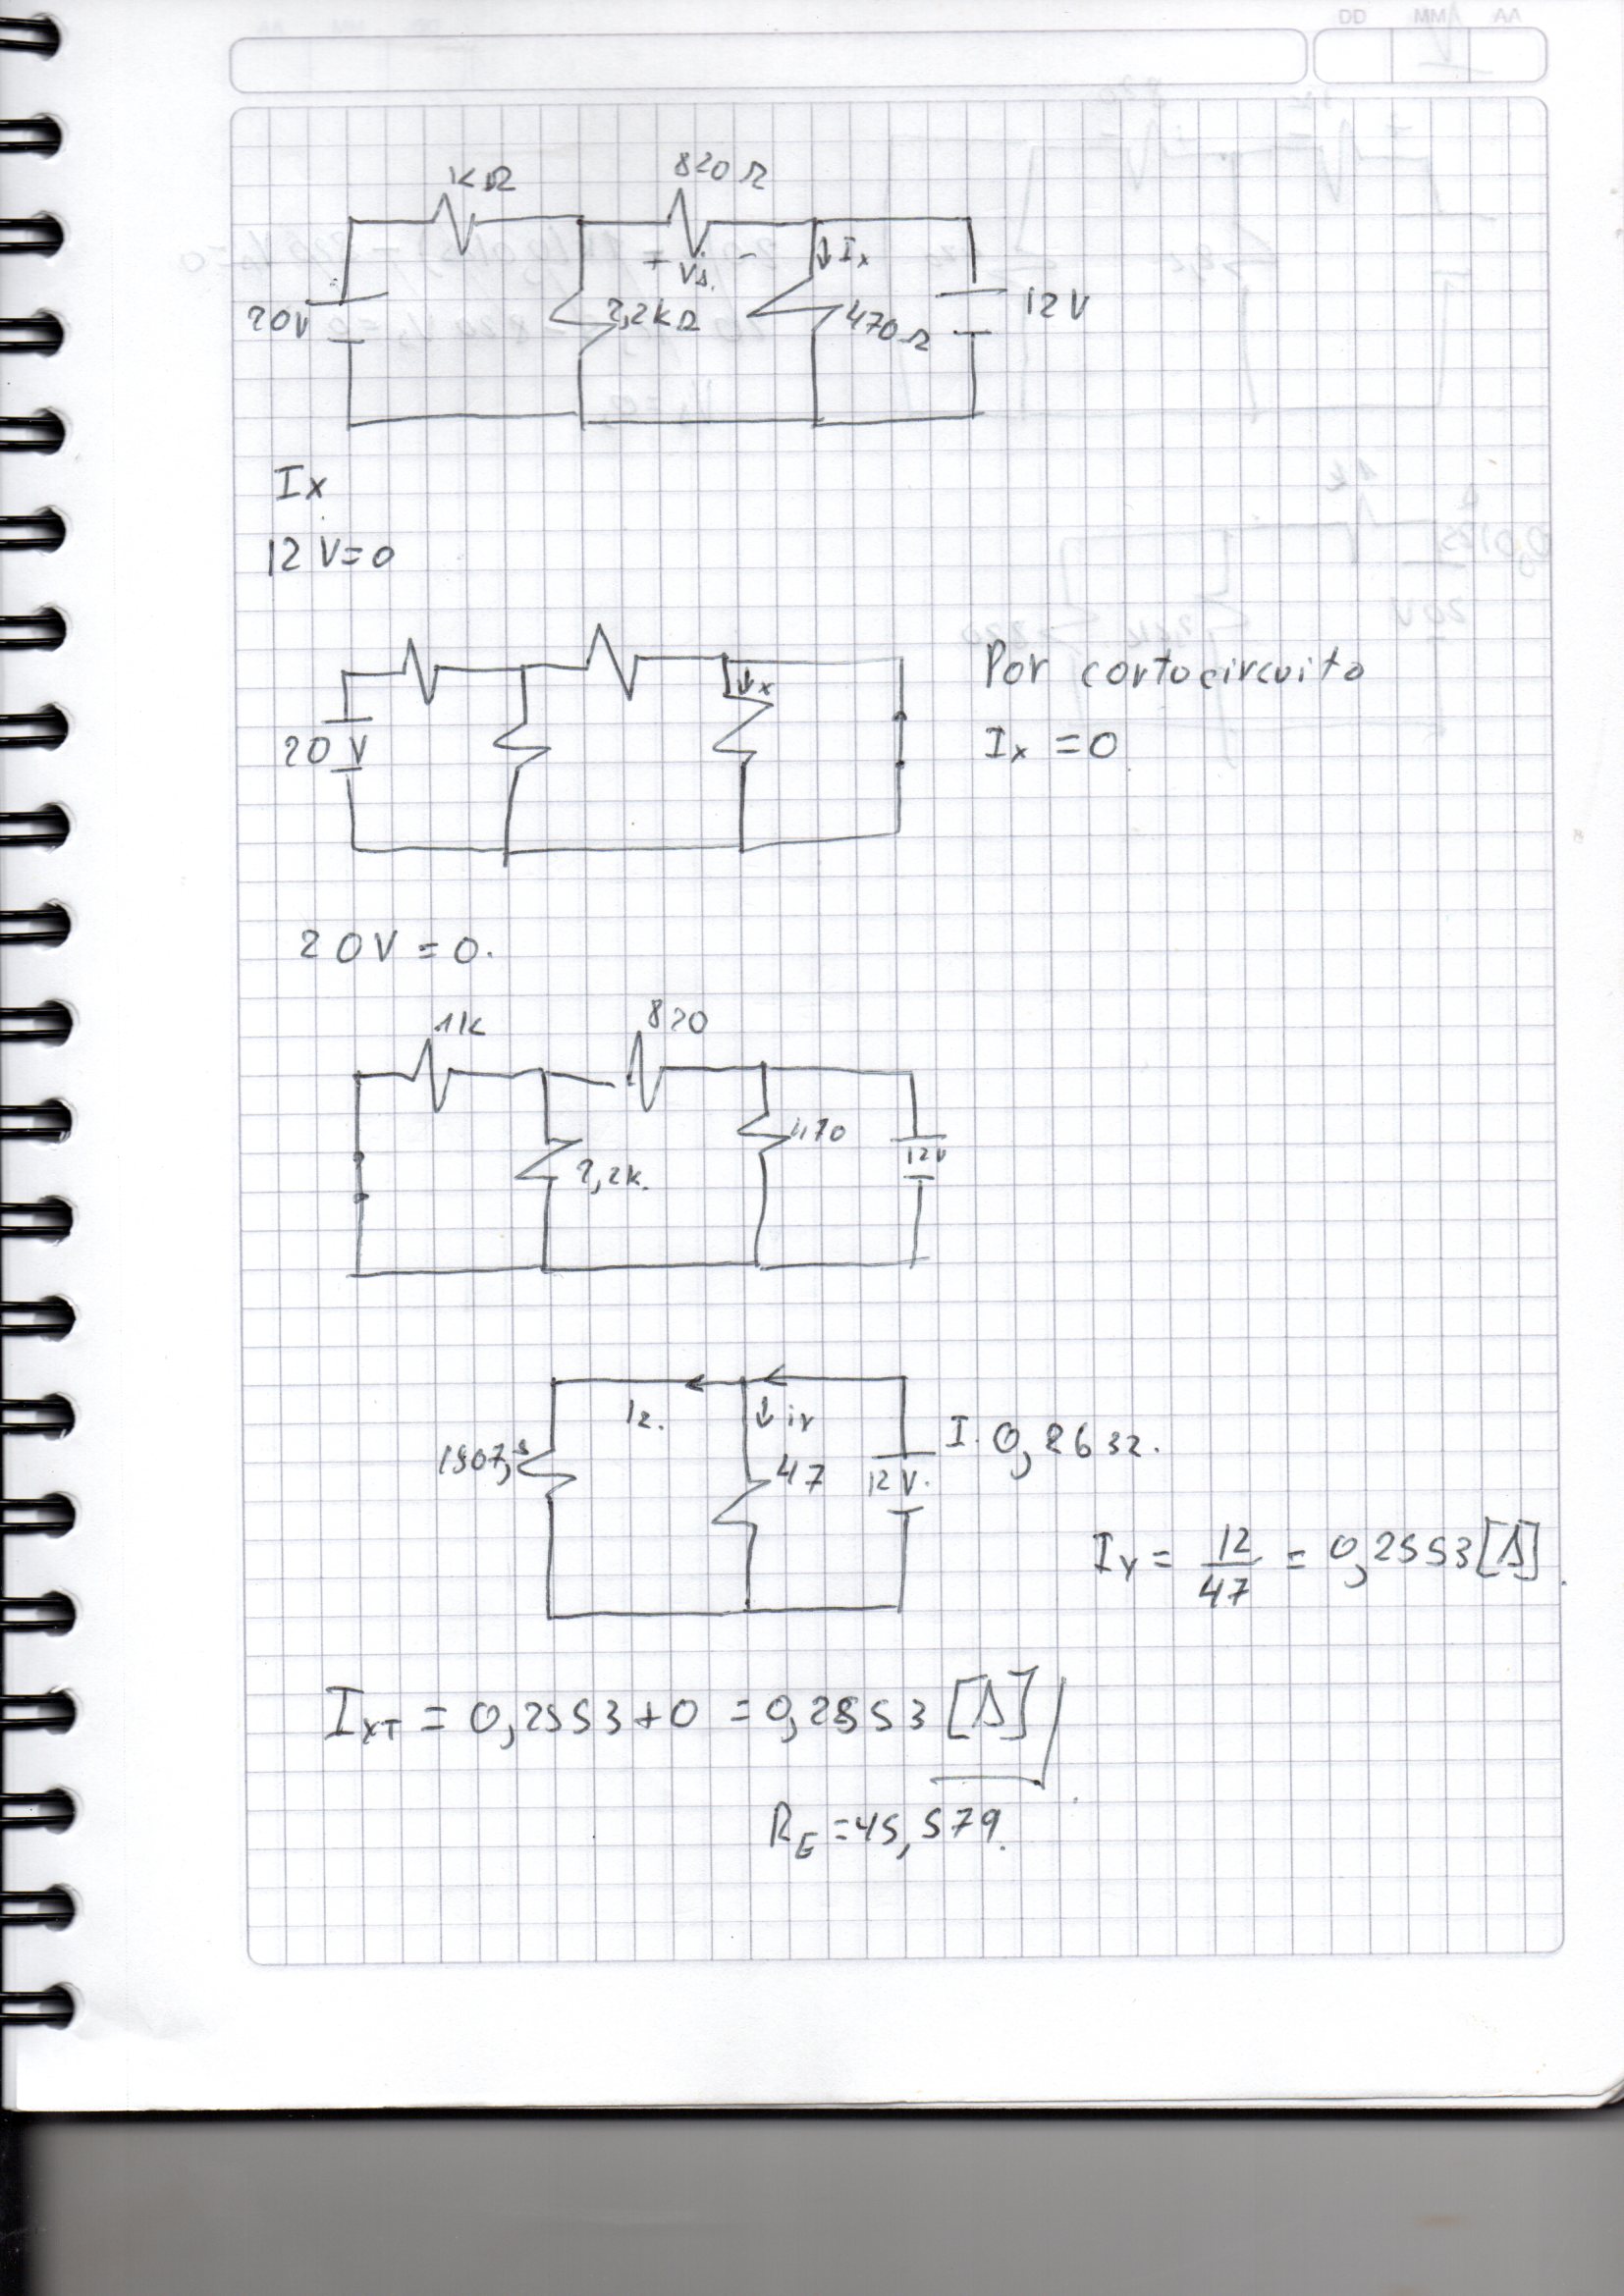 DD MM AA
1KΩ 820Ω
+ Vs. - Ix
20V 2,2kΩ 470Ω 12V
Ix
12 V=0
x
Por cortocircuito
20 V
Ix = 0
20V = 0.
1k 820
470
2,2k. 12V
I2. iy
I. 0,2632.
1507,5 47 12 V.
Iy = 12/47 = 0,2553[A]
IxT = 0,2553+0 = 0,2553 [A]
RE = 45,579.